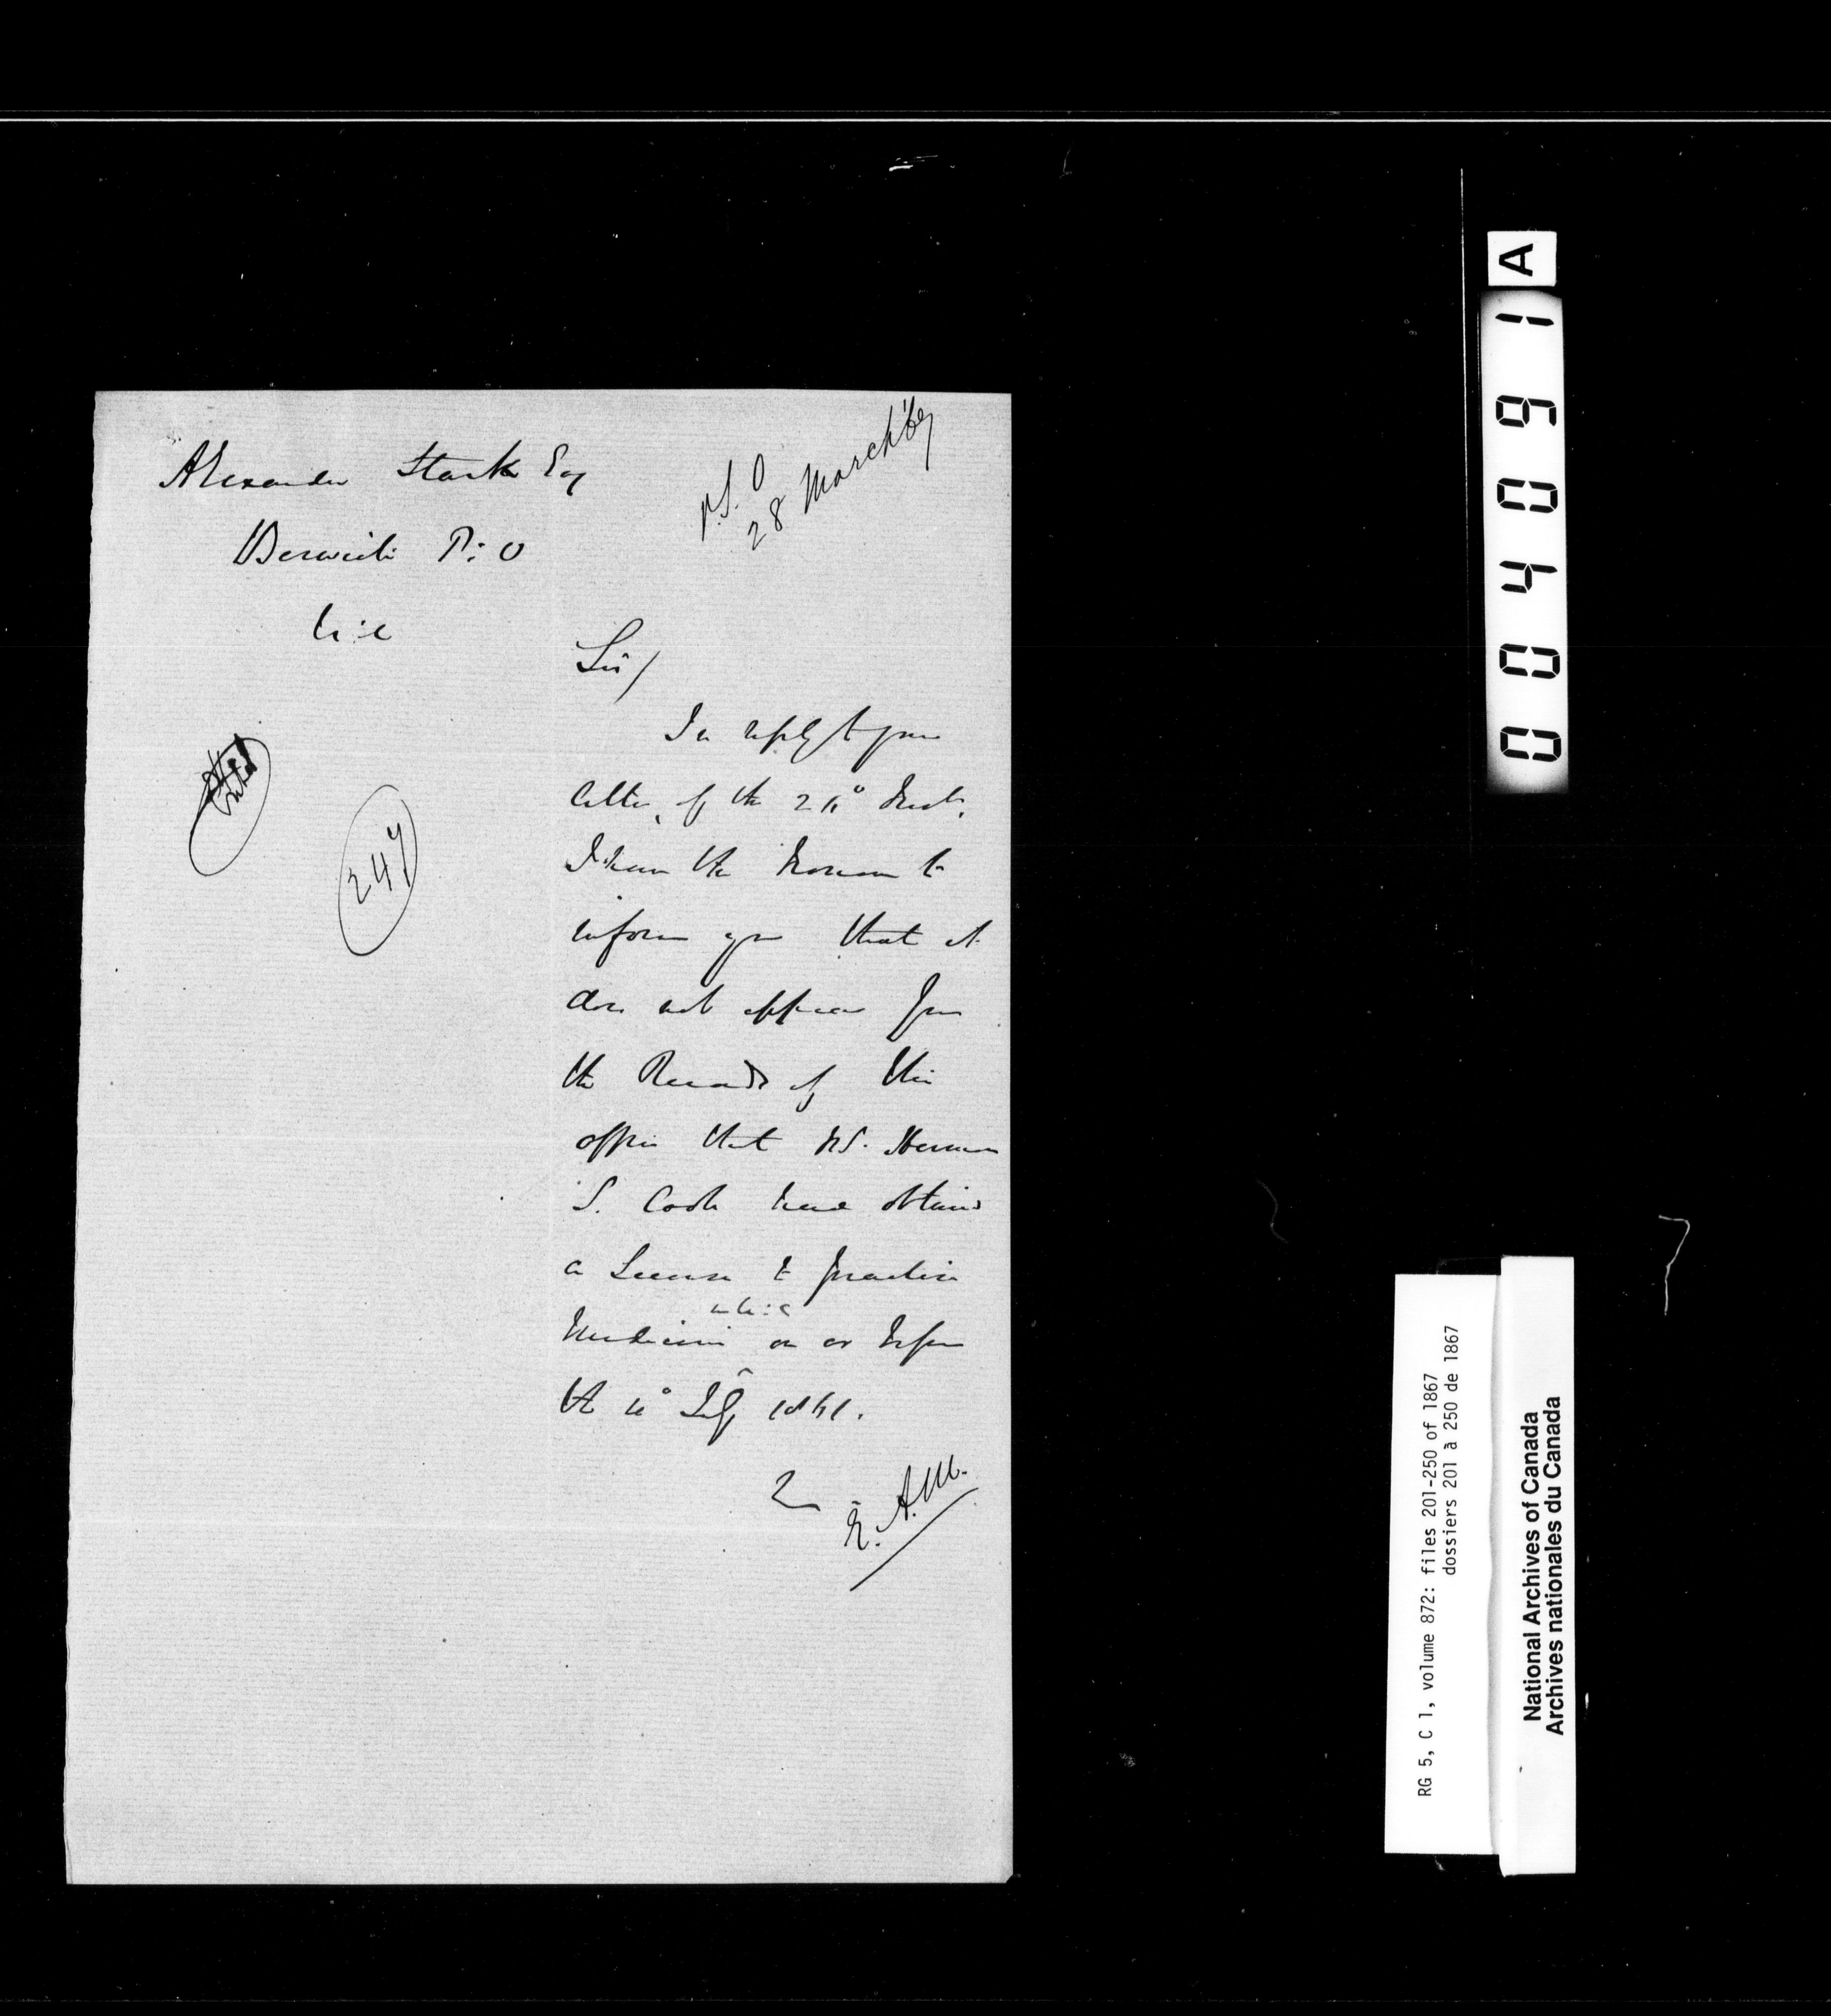 Alexander Stark Esq
Berwick P: O
U: C
P.S.O
28 March '67
247
Sir/
In reply to your
letter, of the Inst.
I have the honour to
inform you that it
does not appear from
the Records of this
office that Herman
S. Cook have obtained
a License to practise
Medicine in U: C on or before
the July 1861.
E. A. M.
A
004091
RG 5, C 1, volume 872: files 201-250 of 1867
dossiers 201 à 250 de 1867
National Archives of Canada
Archives nationales du Canada